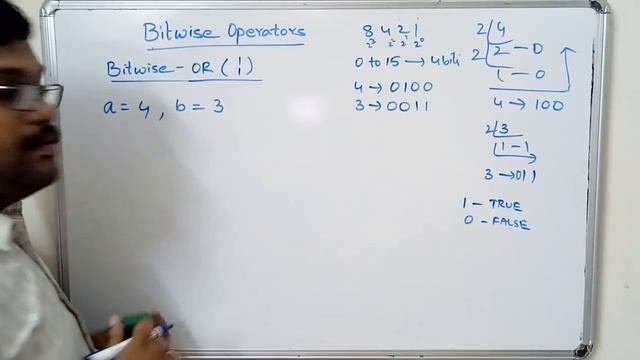 Bitwise Operators
Bitwise - OR ( | )
a = 4 , b = 3
8 4 2 1
2³ 2² 2¹ 2⁰
0 to 15 → 4 bits
4 → 0100
3 → 0011
2 | 4
2 | 2 - 0
1 - 0
4 → 100
2 | 3
1 - 1
3 → 011
1 - TRUE
0 - FALSE